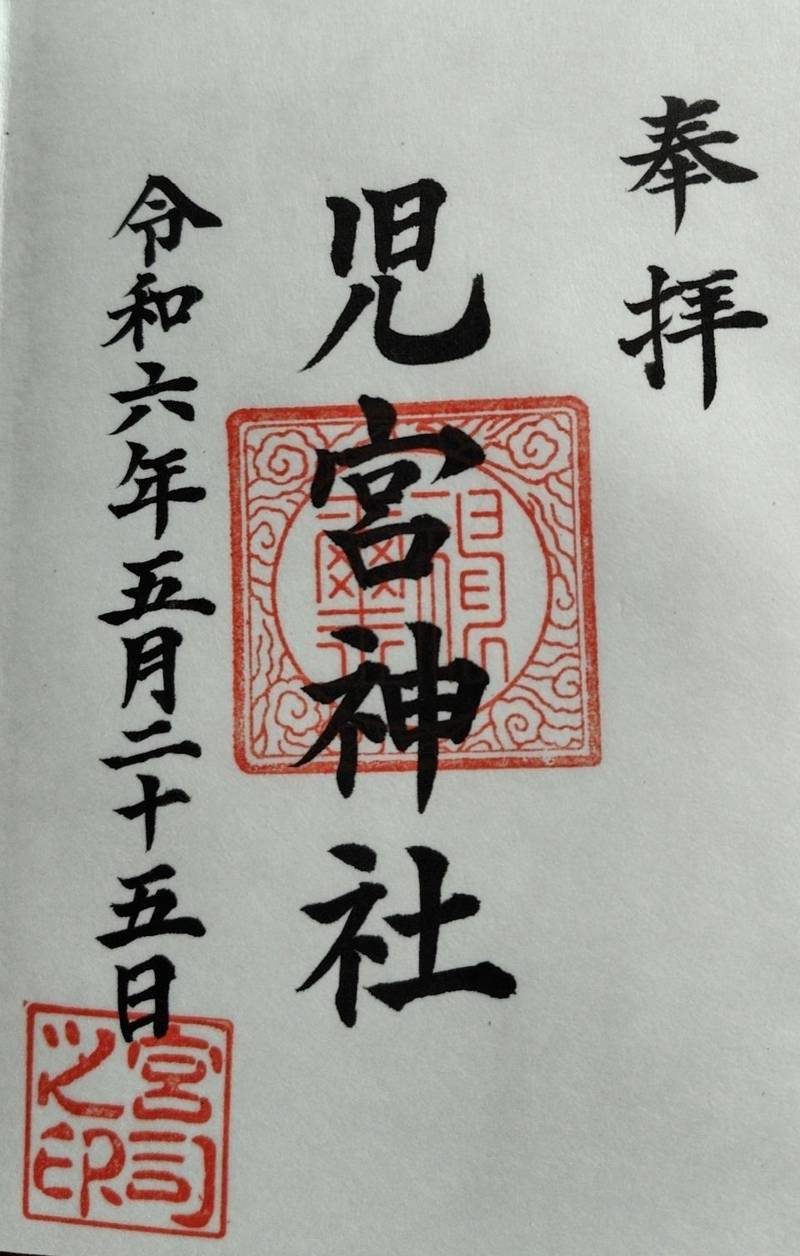 奉拝
児宮神社
令和六年五月二十五日
宮司之印